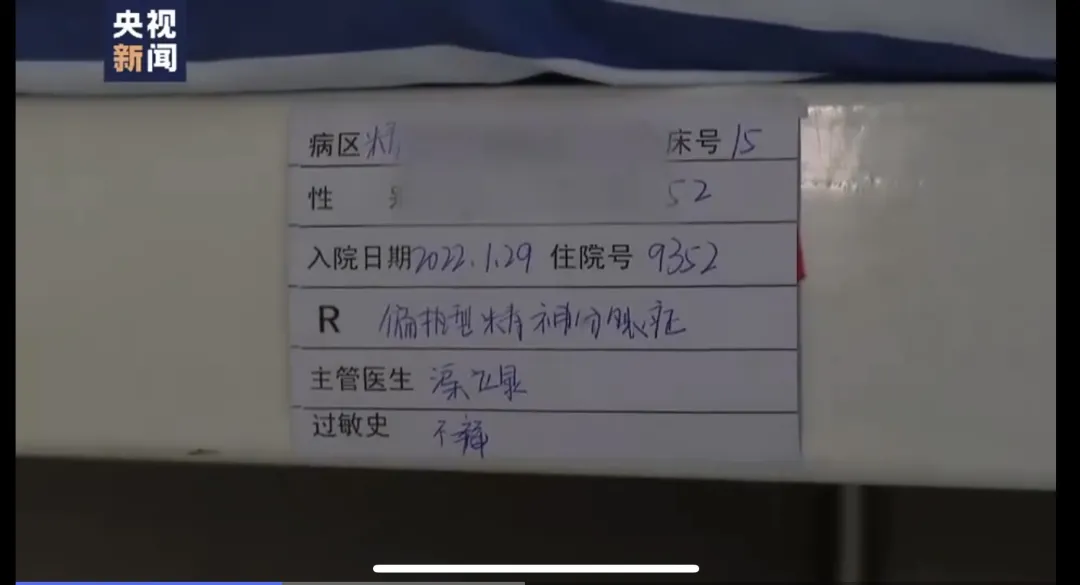 央视
新闻
病区 床号 15
性 52
入院日期 2022.1.29 住院号 9352
R 偏执型精神分裂症
主管医生
过敏史 不详